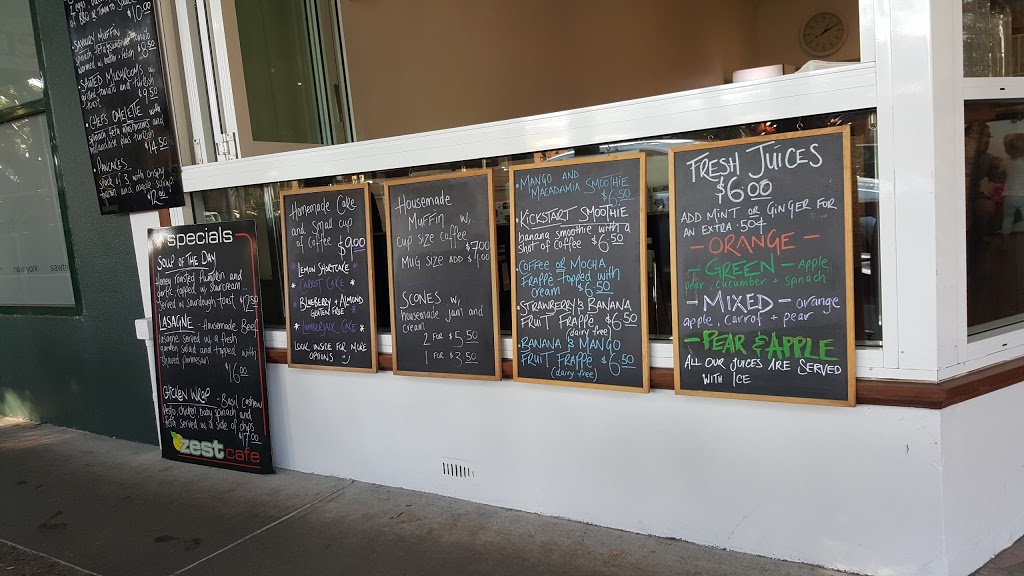 $10.00
SAVOURY MUFFIN
$8.50
SAUTEED MUSHROOMS w.
grilled tomato and turkish
toast
$9.50
CHEFS OMELETTE with
$14.50
PANCAKES
$12.00
specials
SOUP OF THE DAY
Honey roasted Pumpkin and
garlic topped w sourcream
served w sourdough toast $12.50
LASAGNE - Housemade Beef
lasagne served w a fresh
garden salad and topped with
shaved parmesan
$16.00
CHICKEN WRAP - Basil, cashew
pesto, chicken, baby spinach and
feta served w a side of chips
$17.00
zest cafe
Homemade Cake
and Small cup
of Coffee $9.00
* LEMON SHORTCAKE *
* CARROT CAKE *
* BLUEBERRY & ALMOND
GLUTEN FREE *
* LUMBERJACK CAKE *
LOOK INSIDE FOR MORE
OPTIONS
HOUSEMADE
MUFFIN w.
CUP SIZE COFFEE
$7.00
MUG SIZE ADD $1.00
SCONES w.
housemade jam and
cream
2 FOR $5.50
1 FOR $3.50
• MANGO AND
MACADAMIA SMOOTHIE
$6.50
• KICKSTART SMOOTHIE
banana smoothie with a
shot of coffee $6.50
• COFFEE OR MOCHA
FRAPPÉ topped with
cream $6.50
• STRAWBERRY & BANANA
FRUIT FRAPPÉ $6.50
(dairy free)
• BANANA & MANGO
FRUIT FRAPPÉ $6.50
(dairy free)
FRESH JUICES
$6.00
ADD MINT OR GINGER FOR
AN EXTRA 50¢
- ORANGE -
- GREEN - apple,
pear, cucumber + spinach
- MIXED - orange
apple, carrot + pear
- PEAR & APPLE
ALL OUR JUICES ARE SERVED
WITH ICE
newyork